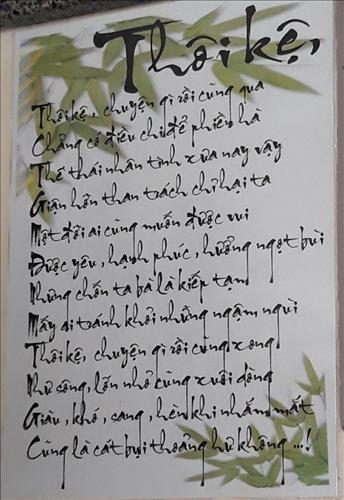 Thôi kệ,
Thôi kệ, chuyện gì rồi cũng qua
Chẳng có điều chi để phiền hà
Thế thái nhân tình xưa nay vậy
Giận hờn than trách chỉ hại ta
Một đời ai cũng muốn được vui
Được yêu, hạnh phúc, hưởng ngọt bùi
Nhưng chốn ta bà là kiếp tạm
Mấy ai tránh khỏi những ngậm ngùi
Thôi kệ, chuyện gì rồi cũng xong
Như sông, lớn nhỏ cũng xuôi dòng
Giàu, khó, sang, hèn khi nhắm mắt
Cũng là cát bụi thoảng hư không ...!